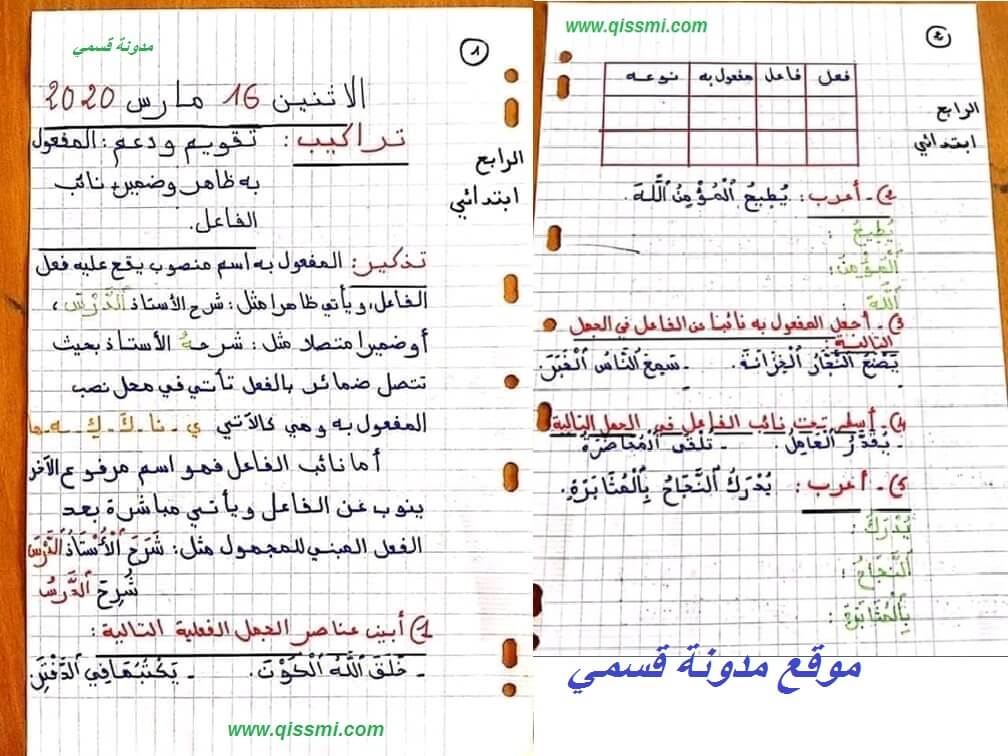 مدونة قسمي
1
الاثنين 16 مارس 2020
تراكيب: تقويم ودعم: المفعول
به ظاهر وضمير، نائب
الفاعل.
الرابع
ابتدائي
تذكير: المفعول به اسم منصوب يقع عليه فعل
الفاعل، ويأتي ظاهرا مثل: شرح الأستاذ الدَّرْسَ،
أو ضميرا متصلا مثل: شرحهُ الأستاذ بحيث
تتصل ضمائر بالفعل تأتي في محل نصب
المفعول به وهي كالآتي ي - نا - كَ - كِ - ه - ها
أما نائب الفاعل فهو اسم مرفوع الآخر
ينوب عن الفاعل ويأتي مباشرة بعد
الفعل المبني للمجهول مثل: شَرَحَ ٱلْأُسْتَاذُ ٱلدَّرْسَ
شُرِحَ ٱلدَّرْسُ
1) أبين عناصر الجمل الفعلية التالية:
- خَلَقَ ٱللَّهُ ٱلْكَوْنَ. - يَكْتُبُهَا فِي ٱلدَّفْتَرِ.
www.qissmi.com
www.qissmi.com
2
فعل فاعل مفعول به نوعه
الرابع
ابتدائي
2) - أعرب: يُطِيعُ ٱلْمُؤْمِنُ ٱللَّهَ.
يُطِيعُ :
ٱلْمُؤْمِنُ:
ٱللَّهَ :
3) - أجعل المفعول به نائبا عن الفاعل في الجمل
التالية:
يَصْنَعُ ٱلنَّجَّارُ ٱلْخِزَانَةَ. - سَمِعَ ٱلنَّاسُ ٱلْخَبَرَ.
4) - أسطر تحت نائب الفاعل في الجمل التالية
- يُقَدَّرُ ٱلْعَامِلُ. - تُلْقَى ٱلْمُحَاضَرَةُ
5) - أعرب: يُدْرَكُ ٱلنَّجَاحُ بِٱلْمُثَابَرَةِ.
يُدْرَكُ :
ٱلنَّجَاحُ :
بِٱلْمُثَابَرَةِ :
موقع مدونة قسمي